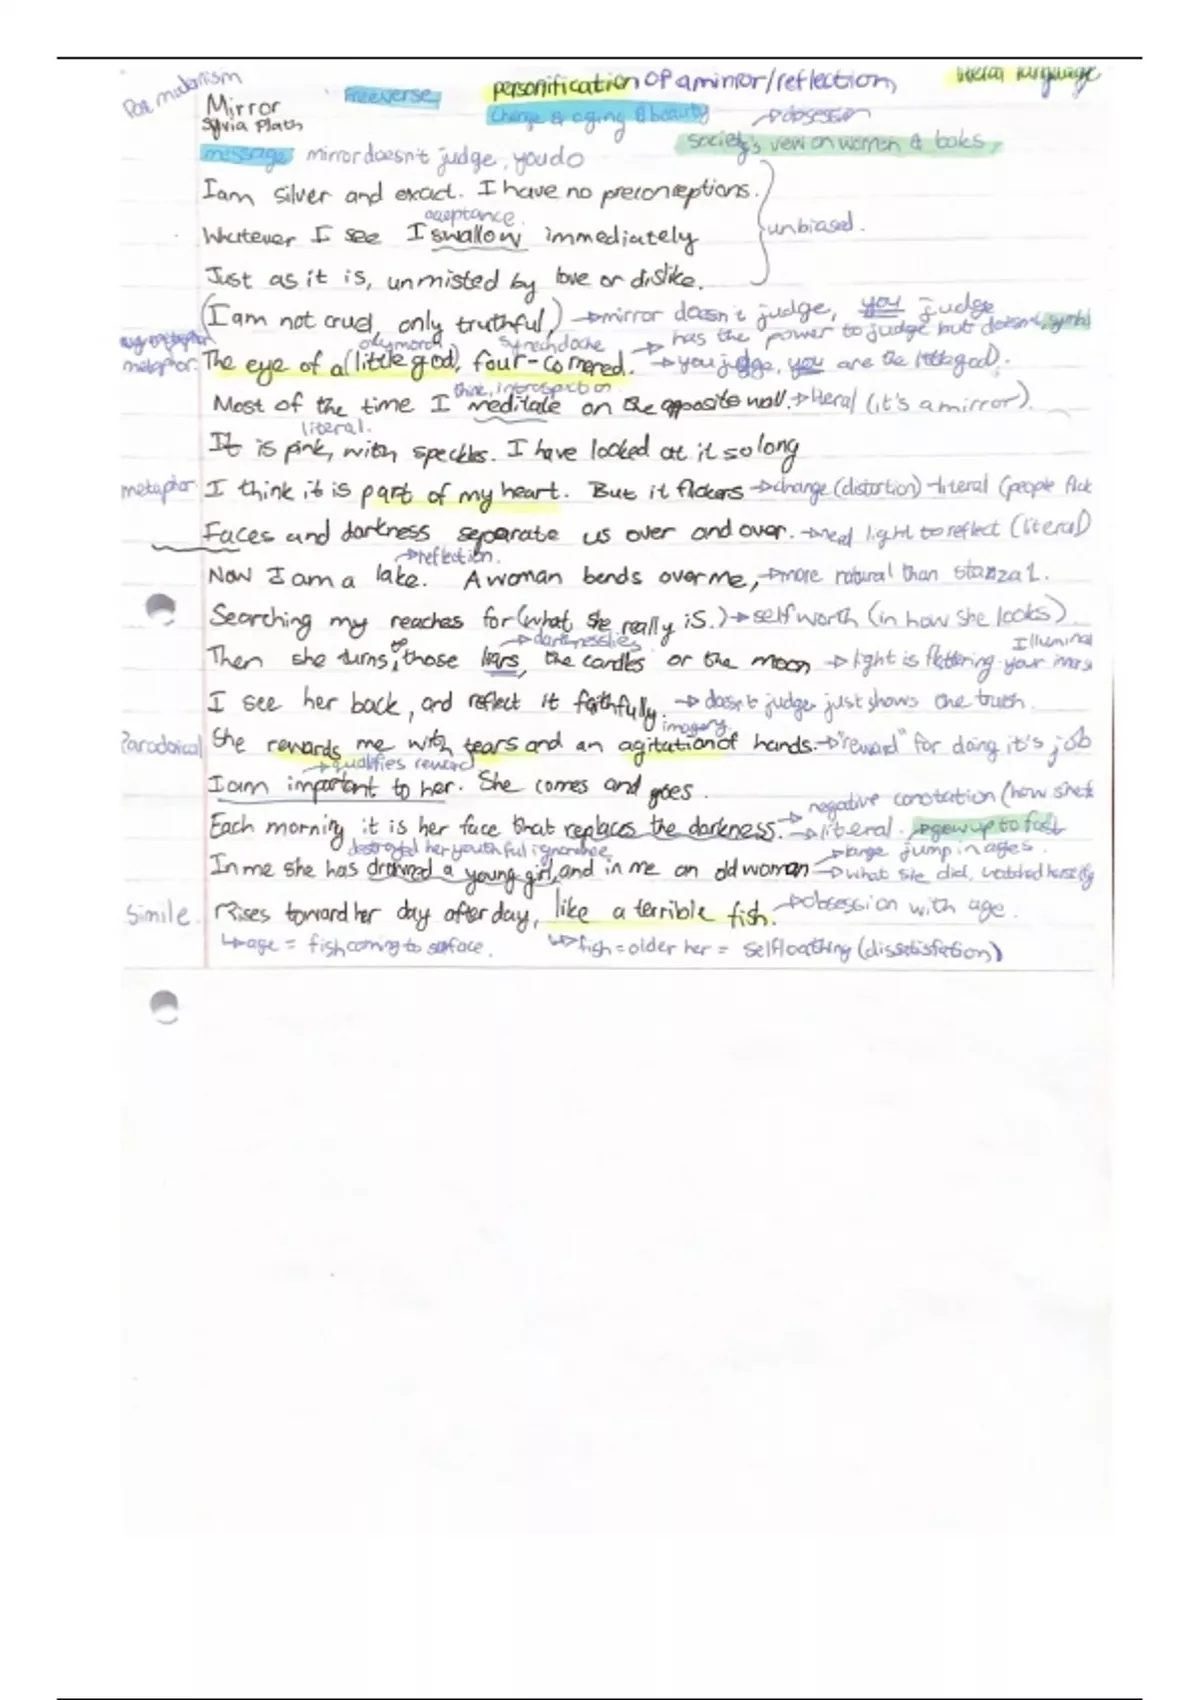 Post modernism
Mirror
Sylvia Plath
Freeverse
personification of a mirror/reflection,
literal language
change & aging & beauty
→ obsession
society's view on women &
message mirror doesn't judge, you do
I am silver and exact. I have no preconceptions.
acceptance.
Whatever I see I swallow immediately
unbiased.
Just as it is, unmisted by love or dislike.
(I am not cruel, only truthful,) → mirror doesn't judge, you judge
→ has the power to judge but doesn't, symbol
oxymoron synechdoche
metaphor. The eye of a (little god), four-cornered. → you judge, you are the little god).
think, introspection
Most of the time I meditate on the opposite wall. → literal (it's a mirror).
literal.
It is pink, with speckles. I have looked at it so long
metaphor I think it is part of my heart. But it flickers → change (distortion) → literal (people flick
Faces and darkness separate us over and over. → need light to reflect (literal)
→ reflection.
Now I am a lake. A woman bends over me, → more natural than stanza 1.
Searching my reaches for (what she really is.) → self worth (in how she looks)
→ darkness lies
Illuminat
Then she turns to those liars, the candles or the moon → light is flattering your
I see her back, and reflect it faithfully. → doesn't judge just shows the truth.
imagery
Paradoxical She rewards me with tears and an agitation of hands. → "reward" for doing it's job
→ qualifies reward
I am important to her. She comes and goes.
→ negative conotation (how she
Each morning it is her face that replaces the darkness. → literal. → grew up to fast
destroyed her youthful ignorance
→ large jump in ages.
In me she has drowned a young girl, and in me an old woman → what she did, watched herself
Simile. Rises toward her day after day, like a terrible fish. → obsession with age.
↳ age = fish coming to surface. ↳ fish = older her = selfloathing (dissatisfation)